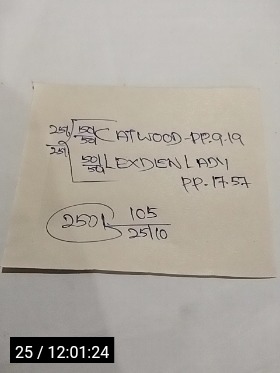 25/ 150/50 CATWOOD-PP.9.19
25/ 50/50 LEXDEN LADY
PP.17.57
250/ 105
25/10
25 / 12:01:24